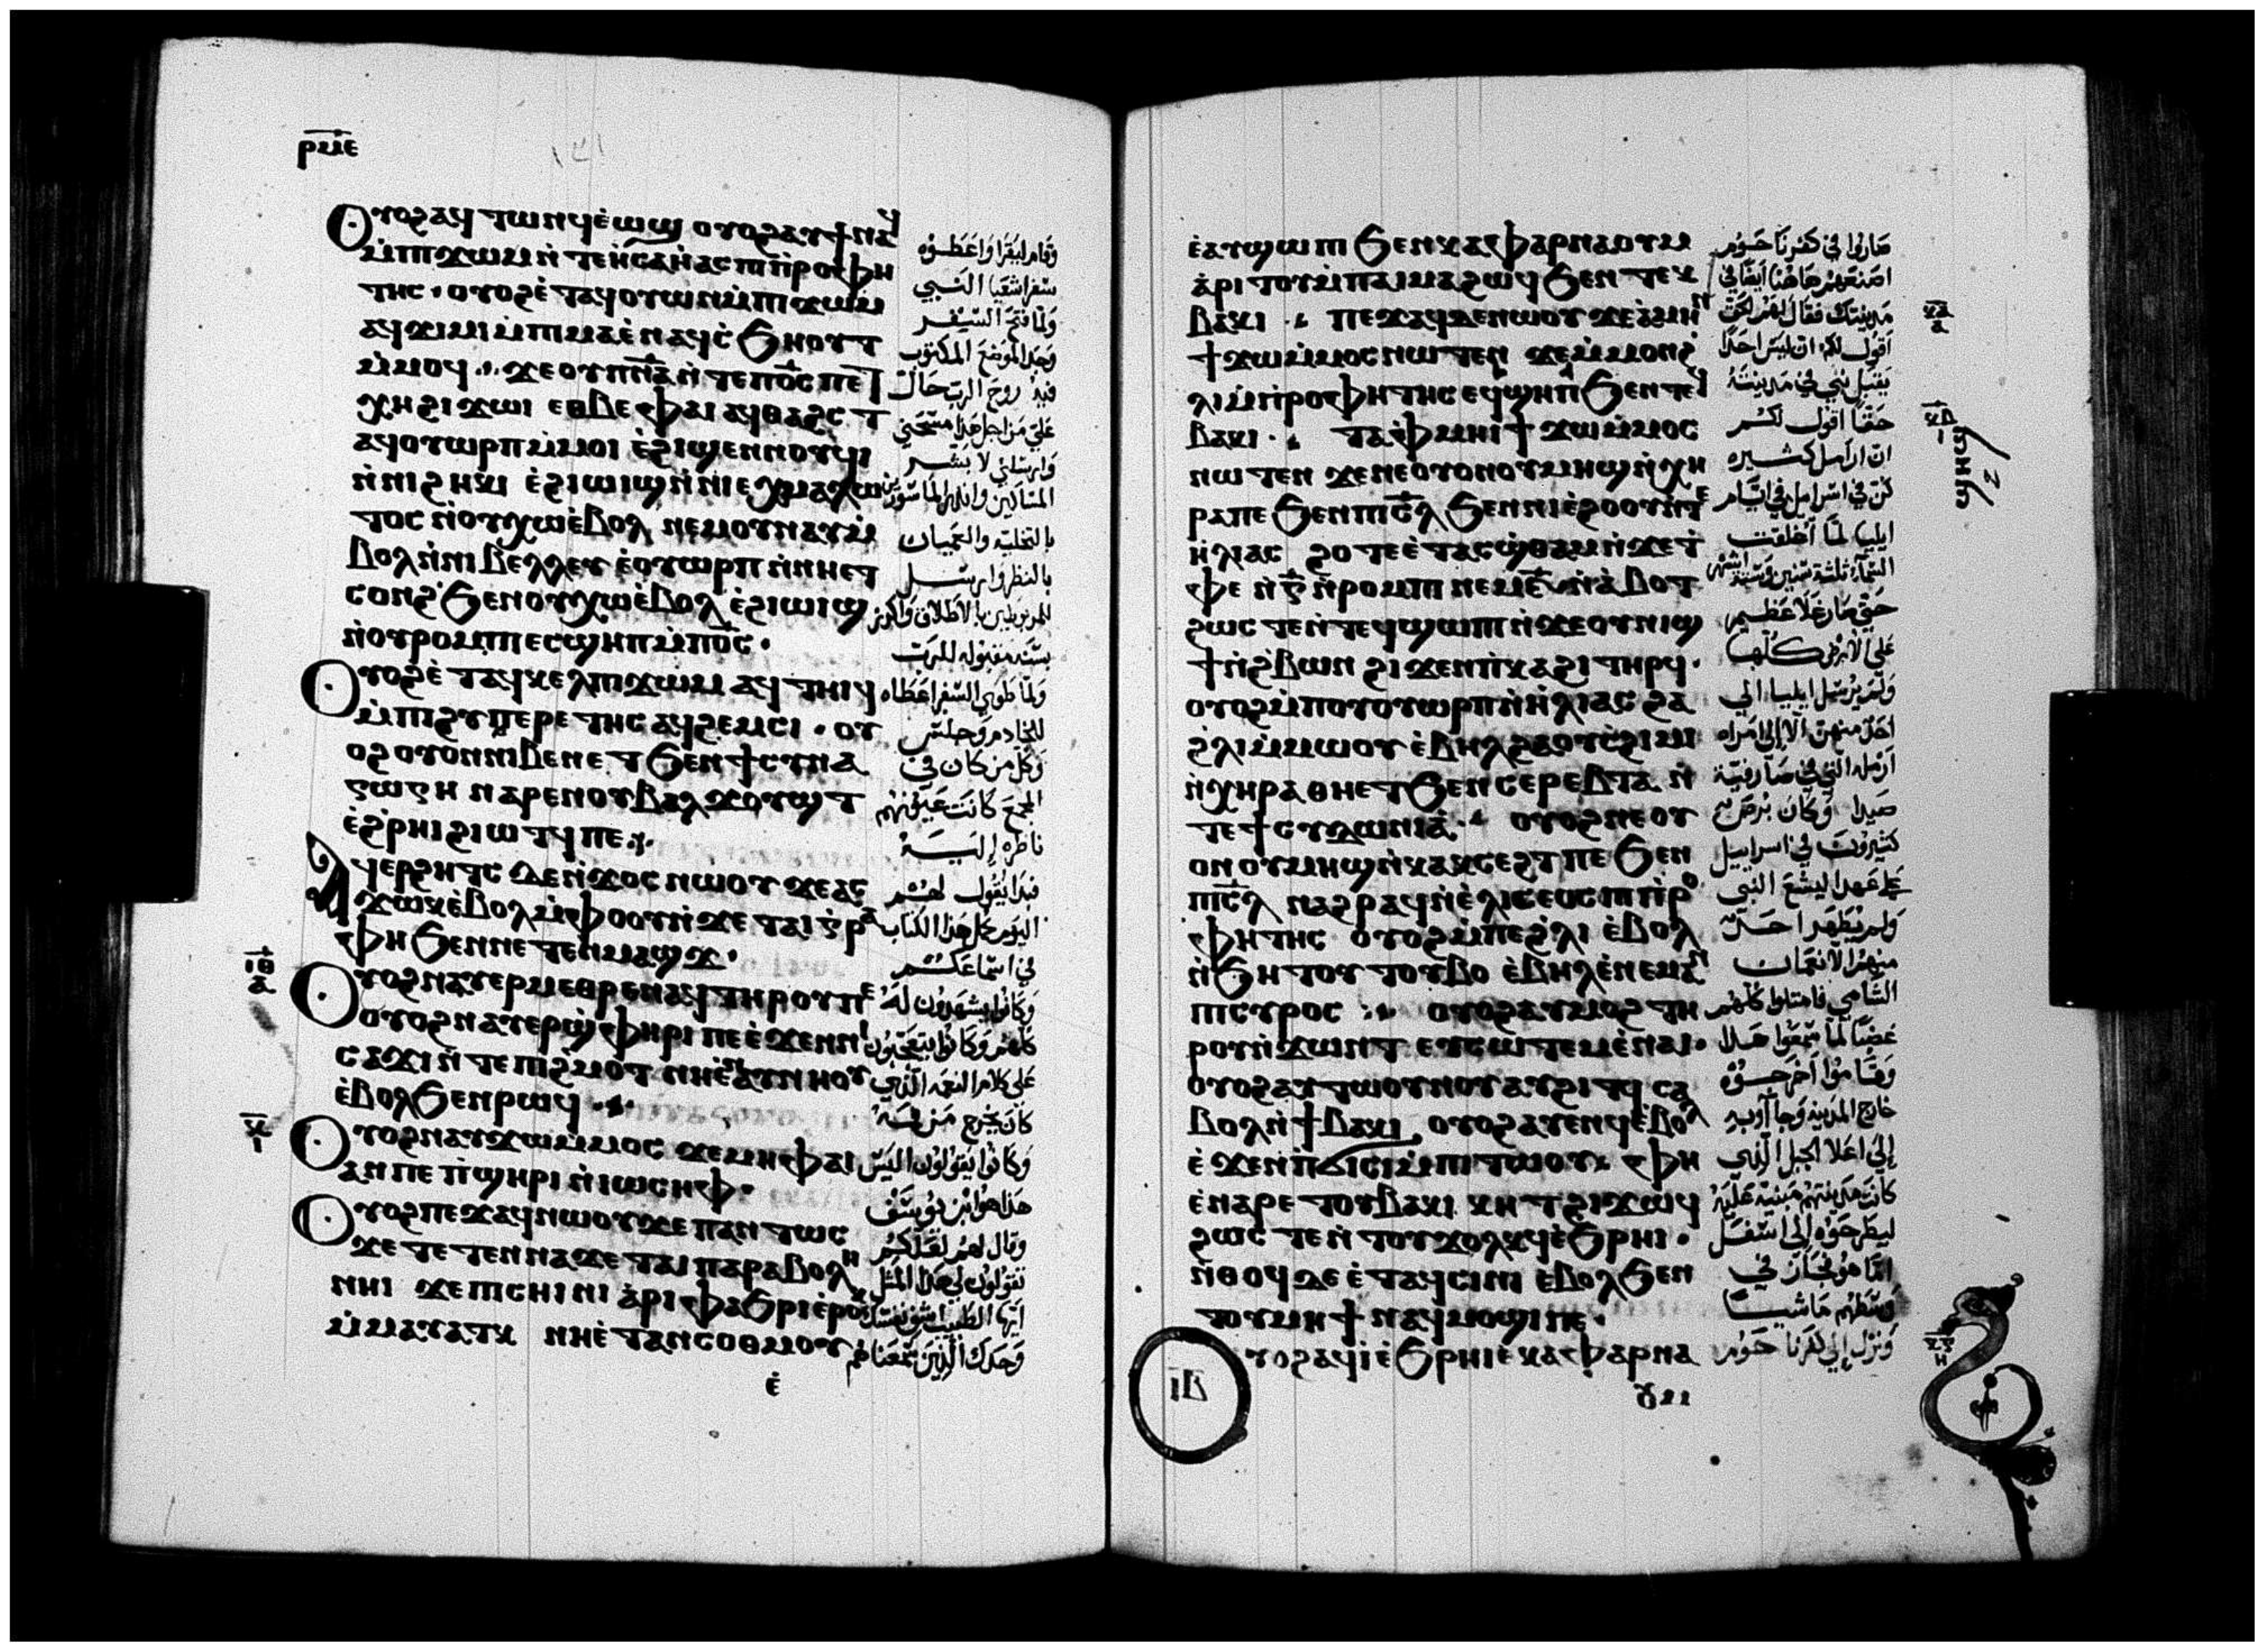 ⲣⲙⲉ
ⲟⲩⲟϩ ⲁϥⲧⲱⲛϥ ⲉ̀ⲱϣ ⲟⲩⲟϩ ⲁⲩϯ ⲛⲁϥ
ⲙ̀ⲡϫⲱⲙ ⲛ̀ⲧⲉ ⲏ̀ⲥⲁⲏ̀ⲁⲥ ⲡⲓⲡ̀ⲣⲟⲫⲏ
ⲧⲏⲥ · ⲟⲩⲟϩ ⲉ̀ⲧⲁϥⲟⲩⲱⲛ ⲙ̀ⲡϫⲱⲙ
ⲁϥϫⲓⲙⲓ ⲙ̀ⲡⲙⲁ ⲉ̀ⲛⲁϥⲥ̀ϧⲏⲟⲩⲧ
ⲙ̀ⲙⲟϥ ·:· ϫⲉ ⲟⲩⲡⲛ̅ⲁ̅ ⲛ̀ⲧⲉ ⲡⲟ̅ⲥ̅ ⲡⲉⲧ
ⲭⲏ ϩⲓϫⲱⲓ ⲉⲑⲃⲉ ⲫⲁⲓ ⲁϥⲑⲁϩⲥⲧ
ⲁϥⲟⲩⲱⲣⲡ ⲙ̀ⲙⲟⲓ ⲉ̀ϩⲓϣⲉⲛⲛⲟⲩϥⲓ
ⲛ̀ⲛⲓϩⲏⲕⲓ ⲉ̀ϩⲓⲱⲓϣ ⲛ̀ⲛⲓⲉⲭⲙⲁⲗⲱ
ⲧⲟⲥ ⲛ̀ⲟⲩⲭⲱ ⲉ̀ⲃⲟⲗ ⲛⲉⲙ ⲟⲩⲛⲁⲩ ⲙ̀
ⲃⲟⲗ ⲛ̀ⲛⲓⲃⲉⲗⲗⲉⲩ ⲉ̀ⲟⲩⲱⲣⲡ ⲛ̀ⲛⲏⲉⲧ
ⲥⲟⲛϩ ϧⲉⲛ ⲟⲩⲭⲱ ⲉ̀ⲃⲟⲗ ⲉ̀ϩⲓⲱⲓϣ
ⲛ̀ⲟⲩⲣⲟⲙⲡⲓ ⲉⲥϣⲏⲡ ⲙ̀ⲡⲟ̅ⲥ̅ ·
ⲟⲩⲟϩ ⲉ̀ⲧⲁϥⲕⲉⲗ ⲡϫⲱⲙ ⲁϥⲧⲏⲓϥ
ⲙ̀ⲡⲓϩⲩⲡⲉⲣⲉⲧⲏⲥ ⲁϥϩⲉⲙⲥⲓ · ⲟⲩ
ⲟϩ ⲟⲩⲟⲛ ⲛⲓⲃⲉⲛ ⲉⲧ ϧⲉⲛ ϯⲥⲩⲛⲁ
ⲅⲱⲅⲏ ⲛⲁⲣⲉ ⲛⲟⲩⲃⲁⲗ ϫⲟⲩϣⲧ
ⲉ̀ϩ̀ⲣⲏⲓ ϩⲓⲱⲧϥ ⲡⲉ ·:·
ⲁϥⲉⲣϩⲏⲧⲥ ⲇⲉ ⲛ̀ϫⲟⲥ ⲛⲱⲟⲩ ϫⲉ ⲁⲥ
ϫⲱⲕ ⲉ̀ⲃⲟⲗ ⲙ̀ⲫⲟⲟⲩ ⲛ̀ϫⲉ ⲧⲁⲓⲅ̀ⲣⲁ
ⲫⲏ ϧⲉⲛ ⲛⲉⲧⲉⲛⲙⲁϣϫ ·
ⲓⲑ
ⲁ
ⲟⲩⲟϩ ⲛⲁⲩⲉⲣⲙⲉⲑⲣⲉ ⲛⲁϥ ⲧⲏⲣⲟⲩ ⲡⲉ
ⲟⲩⲟϩ ⲛⲁⲩⲉⲣϣ̀ⲫⲏⲣⲓ ⲡⲉ ⲉ̀ϫⲉⲛ ⲛⲓ
ⲥⲁϫⲓ ⲛ̀ⲧⲉ ⲡⲓϩ̀ⲙⲟⲧ ⲛⲏⲉ̀ⲛⲁⲩⲛⲏⲟⲩ
ⲉ̀ⲃⲟⲗ ϧⲉⲛ ⲣⲱϥ ·:·
ⲕ
ⲓ
ⲟⲩⲟϩ ⲛⲁⲩϫⲱ ⲙ̀ⲙⲟⲥ ϫⲉ ⲙⲏ ⲫⲁⲓ
ⲁⲛ ⲡⲉ ⲡ̀ϣⲏⲣⲓ ⲛ̀ⲓⲱⲥⲏⲫ ·
ⲟⲩⲟϩ ⲡⲉϫⲁϥ ⲛⲱⲟⲩ ϫⲉ ⲡⲁⲛⲧⲱⲥ
ϫⲉ ⲧⲉⲧⲉⲛⲛⲁϫⲉ ⲧⲁⲓⲡⲁⲣⲁⲃⲟⲗⲏ
ⲛⲏⲓ ϫⲉ ⲡⲓⲥⲏⲓⲛⲓ ⲁ̀ⲣⲓⲫⲁϧⲣⲓ ⲉ̀ⲣⲟⲕ
ⲙ̀ⲙⲁⲩⲁⲧⲕ ⲛⲏⲉ̀ⲧⲁⲛⲥⲟⲑⲙⲟⲩ
ⲉ̀
وقام ليقرا واعطوه
سفر اشعيا النبي
ولما فتح السفر
وجد الموضع المكتوب
فيه روح الرب حال
علي من اجل هذا مسحني
وارسلني لابشر
المساكين وانذر الماسورين
بالتخلية والعميان
بالنظر وارسل
المربوطين بالاطلاق واكرز
بسنة مقبوله للرب
ولما طوي السفر اعطاه
للخادم وجلس
وكل من كان في
المجمع كانت عيونهم
ناظره إليه
فبدا يقول لهم
اليوم كمل هذا الكتاب
في اسماعكم
وكانوا يشهدون له
كلهم وكانوا يتعجبون
على كلام النعمه الذي
كان يخرج من فمه
وكانوا يقولون اليس
هذا هو ابن يوسف
وقال لهم لعلكم
تقولون لي هذا المثل
ايها الطبيب اشفي نفسك
وحدك الذين سمعناهم
ⲉ̀ⲁⲩϣⲱⲡⲓ ϧⲉⲛ ⲕⲁⲫⲁⲣⲛⲁⲟⲩⲙ
ⲁ̀ⲣⲓⲧⲟⲩ ⲙ̀ⲡⲁⲓⲙⲁ ϩⲱϥ ϧⲉⲛ ⲧⲉⲕ
ⲃⲁⲕⲓ ·:· ⲡⲉϫⲁϥ ⲇⲉ ⲛⲱⲟⲩ ϫⲉ ⲁ̀ⲙⲏⲛ
ϯϫⲱ ⲙ̀ⲙⲟⲥ ⲛⲱⲧⲉⲛ ϫⲉ ⲙ̀ⲙⲟⲛ ϩ̀
ⲗⲓ ⲙ̀ⲡ̀ⲣⲟⲫⲏⲧⲏⲥ ⲉϥϣⲏⲡ ϧⲉⲛ ⲧⲉϥ
ⲃⲁⲕⲓ ·:· ⲧⲁⲫ̀ⲙⲏⲓ ϯϫⲱ ⲙ̀ⲙⲟⲥ
ⲛⲱⲧⲉⲛ ϫⲉ ⲛⲉ ⲟⲩⲟⲛ ⲟⲩⲙⲏϣ ⲛ̀ⲭⲏ
ⲣⲁ ⲡⲉ ϧⲉⲛ ⲡⲓⲥ̅ⲗ ϧⲉⲛ ⲛⲓⲉ̀ϩⲟⲟⲩ ⲛ̀ⲧⲉ
ⲏ̀ⲗⲓⲁⲥ ϩⲟⲧⲉ ⲉ̀ⲧⲁⲥϣ̀ⲑⲁⲙ ⲛ̀ϫⲉ ⲧ̀
ⲫⲉ ⲛ̀ⲅ̅ ⲛ̀ⲣⲟⲙⲡⲓ ⲛⲉⲙ ⲋ̅ ⲛ̀ⲁ̀ⲃⲟⲧ
ϩⲱⲥ ⲧⲉ ⲛ̀ⲧⲉϥϣⲱⲡⲓ ⲛ̀ϫⲉ ⲟⲩⲛⲓϣ
ϯ ⲛ̀ϩ̀ⲃⲱⲛ ϩⲓϫⲉⲛ ⲡ̀ⲕⲁϩⲓ ⲧⲏⲣϥ ·
ⲟⲩⲟϩ ⲙ̀ⲡⲟⲩⲟⲩⲱⲣⲡ ⲛ̀ⲏ̀ⲗⲓⲁⲥ ϩⲁ
ϩ̀ⲗⲓ ⲙ̀ⲙⲱⲟⲩ ⲉ̀ⲃⲏⲗ ϩⲁ ⲟⲩⲥ̀ϩⲓⲙⲓ
ⲛ̀ⲭⲏⲣⲁ ⲑⲏⲉⲧ ϧⲉⲛ ⲥⲉⲣⲉⲃⲧⲁ ⲛ̀
ⲧⲉ ϯⲥⲩⲇⲱⲛⲓⲁ̀ ·:· ⲟⲩⲟϩ ⲛⲉ ⲟⲩ
ⲟⲛ ⲟⲩⲙⲏϣ ⲛ̀ⲕⲁⲕⲥⲉϩⲧ ⲡⲉ ϧⲉⲛ
ⲡⲓⲥ̅ⲗ ⲛⲁϩⲣⲁϥ ⲛ̀ⲉ̀ⲗⲓⲥⲉⲟⲥ ⲡⲓⲡ̀ⲣⲟ
ⲫⲏⲧⲏⲥ ⲟⲩⲟϩ ⲙ̀ⲡⲉ ϩ̀ⲗⲓ ⲉ̀ⲃⲟⲗ
ⲛ̀ϧⲏⲧⲟⲩ ⲧⲟⲩⲃⲟ ⲉ̀ⲃⲏⲗ ⲉ̀ⲛⲉⲙⲁⲛ
ⲡⲓⲥⲩⲣⲟⲥ ·:· ⲟⲩⲟϩ ⲁⲩⲙⲟϩ ⲧⲏ
ⲣⲟⲩ ⲛ̀ϫⲱⲛⲧ ⲉⲩⲥⲱⲧⲉⲙ ⲉ̀ⲛⲁⲓ ·
ⲟⲩⲟϩ ⲁⲩⲧⲱⲟⲩⲛⲟⲩ ⲁⲩϩⲓⲧϥ ⲥⲁ
ⲃⲟⲗ ⲛ̀ϯⲃⲁⲕⲓ ⲟⲩⲟϩ ⲁⲩⲉⲛϥ ⲉ̀ⲃⲟⲗ
ⲉ̀ϫⲉⲛ ⲡ̀ϭⲓⲥⲓ ⲙ̀ⲡⲓⲧⲱⲟⲩ ⲫⲏ
ⲉ̀ⲛⲁⲣⲉ ⲧⲟⲩⲃⲁⲕⲓ ⲕⲏⲧ ϩⲓϫⲱϥ
ϩⲱⲥ ⲧⲉ ⲛ̀ⲧⲟⲩϫⲟⲗⲕϥ ⲉ̀ϧⲣⲏⲓ ·
ⲛ̀ⲑⲟϥ ⲇⲉ ⲉ̀ⲧⲁϥⲥⲓⲛⲓ ⲉ̀ⲃⲟⲗ ϧⲉⲛ
ⲧⲟⲩⲙⲏϯ ⲛⲁϥⲙⲟϣⲓ ⲡⲉ ·
ⲟⲩⲟϩ ⲁϥⲓ̀ ⲉ̀ϧⲣⲏⲓ ⲉ̀ⲕⲁⲫⲁⲣⲛⲁ
ⲟⲩⲙ
صاروا في كفرناحوم
اصنعهم هاهنا ايضا في
مدينتك فقال لهم الحق
اقول لكم ان ليس احدا
يقبل نبي في مدينته
حقا اقول لكم
ان ارامل كثيره
كن في اسرايل في ايام
ايليا لما اغلقت
السماء ثلثة سنين وستة اشهر
حتى صار غلا عظيم
على الارض كلها
ولم يرسل ايليا الي
احد منهن الا الى امراه
ارملة التي في صارفية
صيدا وكان برص
كثيرون في اسراييل
على عهد اليشع النبي
ولم يطهر احد
منهم الا نعمان
الشامي فامتلوا كلهم
غضبا لما سمعوا هذا
وقاموا اخرجوه
خارج المدينه وجاوا به
إلى اعلا الجبل الذي
كانت مدينتهم مبنية عليه
ليطرحوه إلى اسفل
اما هو فجاز في
وسطهم ماشيا
ونزل إلي كفرناحوم
ⲕⲁ
ⲁ
ⲕⲃ
ⲕⲅ
ⲏ